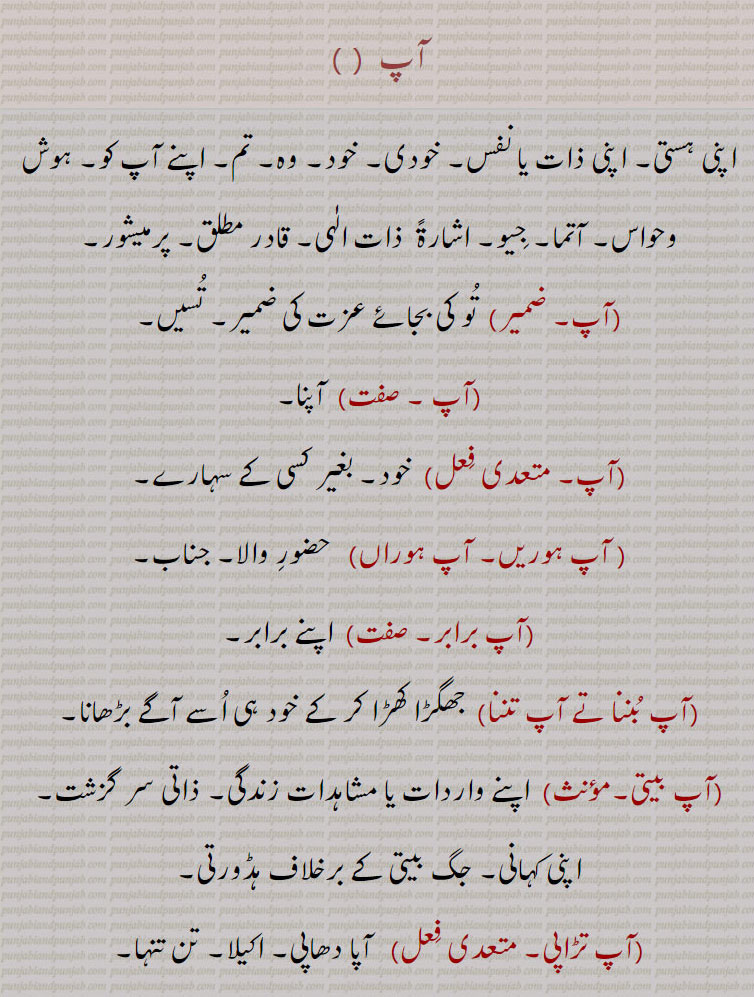 آپ ( )
اپنی ہستی۔ اپنی ذات یا نفس۔ خودی۔ خود۔ وہ۔ تم۔ اپنے آپ کو۔ ہوش
وحواس۔ آتما۔ جِیو۔ اشارۃً ذات الٰہی۔ قادر مطلق۔ پرمیشور۔
(آپ۔ ضمیر) تُو کی بجائے عزت کی ضمیر۔ تُسیں۔
(آپ ۔ صفت) آپنا۔
(آپ۔ متعدی فِعل) خود۔ بغیر کسی کے سہارے۔
( آپ ہوریں۔ آپ ہوراں) حضورِ والا۔ جناب۔
(آپ برابر۔ صفت) اپنے برابر۔
(آپ بُننا تے آپ تننا) جھگڑا کھڑا کر کے خود ہی اُسے آگے بڑھانا۔
(آپ بیتی۔مؤنث) اپنے واردات یا مشاہدات زندگی۔ ذاتی سر گزشت۔
اپنی کہانی۔ جگ بیتی کے برخلاف ہڈورتی۔
(آپ تڑاپی۔ متعدی فِعل) آپا دھاپی۔ اکیلا۔ تن تنہا۔